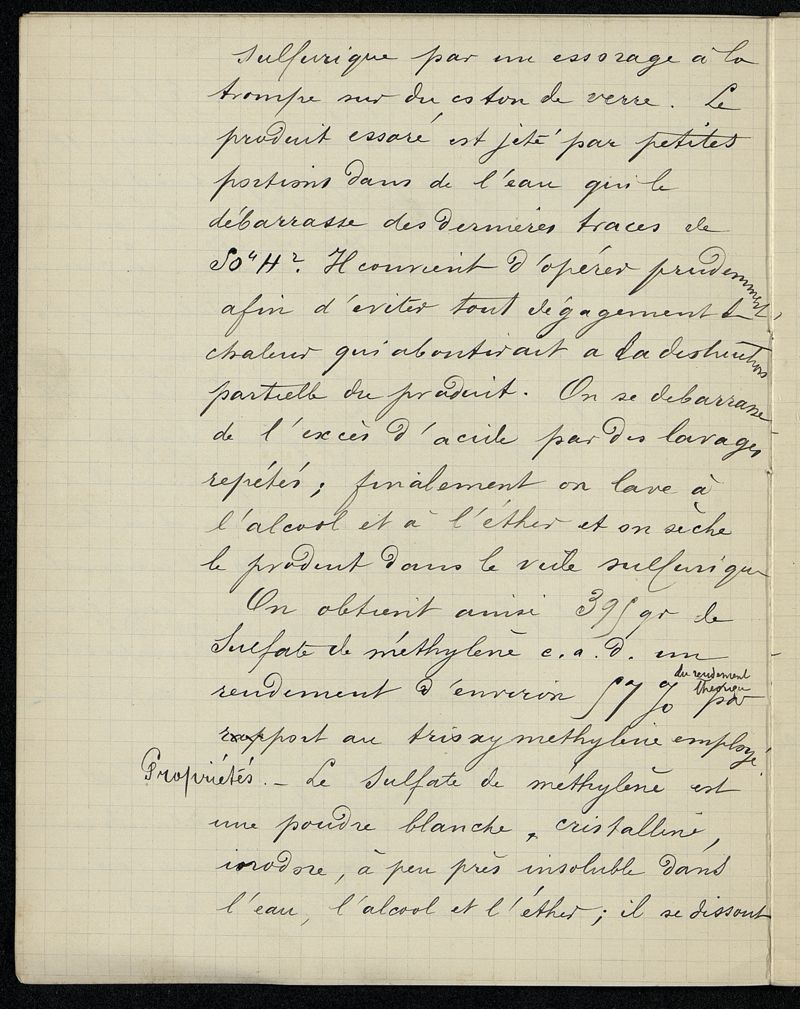 sulfurique par un essorage à la
trompe sur du coton de verre. Le
produit essoré est jeté par petites
portions dans de l'eau qui le
débarrasse des dernières traces de
SO⁴H². Il convient d'opérer prudemment,
afin d'eviter tout dégagement de
chaleur qui aboutirait a la destruction
partielle du produit. On se debarrasse
de l'excès d'acide par des lavages
repétés; finalement on lave à
l'alcool et à l'éther et on sèche
le produit dans le vide sulfurique
On obtient ainsi 395 gr de
Sulfate de méthylène c.a.d. un
du rendement
théorique
rendement d'environ 57 % par
rapport au trioxymethylène employé
Propriétés. — Le Sulfate de méthylène est
une poudre blanche, cristalline,
inodore, à peu près insoluble dans
l'eau, l'alcool et l'éther; il se dissout